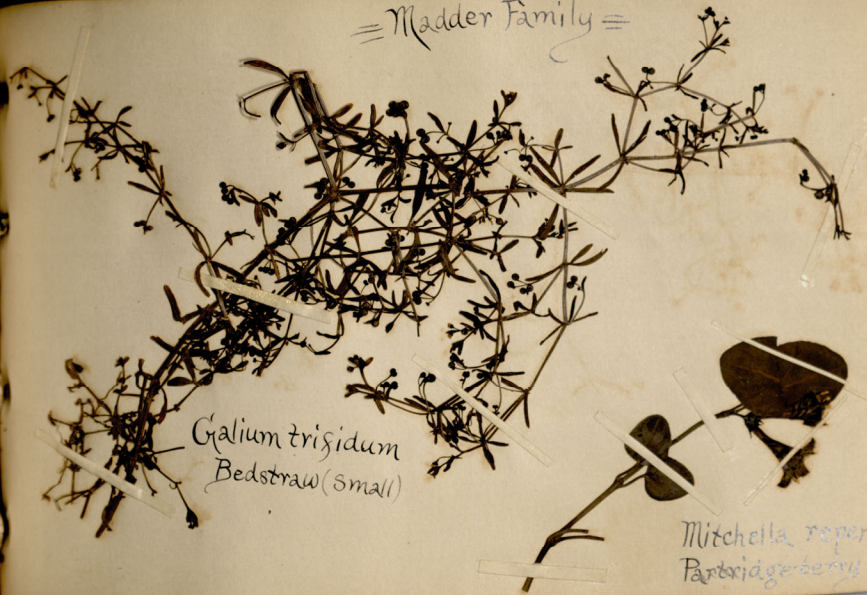 = Madder Family =
Galium trifidum
Bedstraw (small)
Mitchella repen
Partridge-berry